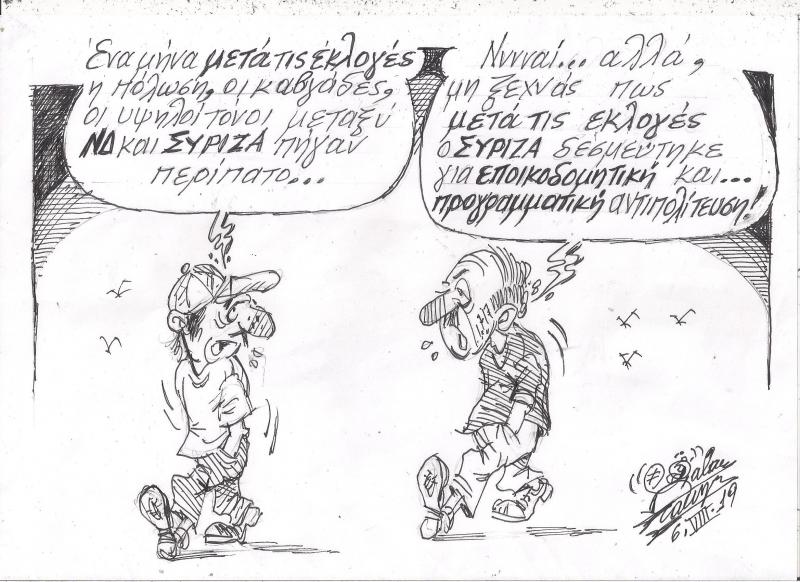 Ένα μήνα μετά τις έκλογές
η πόλωση, οι καβγάδες,
οι υψηλοί τόνοι μεταξύ
ΝΔ και ΣΥΡΙΖΑ πήγαν
περίπατο...
Ννναί... αλλά,
μη ξεχνάς πως
μετά τις εκλογές
ο ΣΥΡΙΖΑ δεσμεύτηκε
για εποικοδομητική και...
προγραμματική αντιπολίτευση!
6. VIII. 19